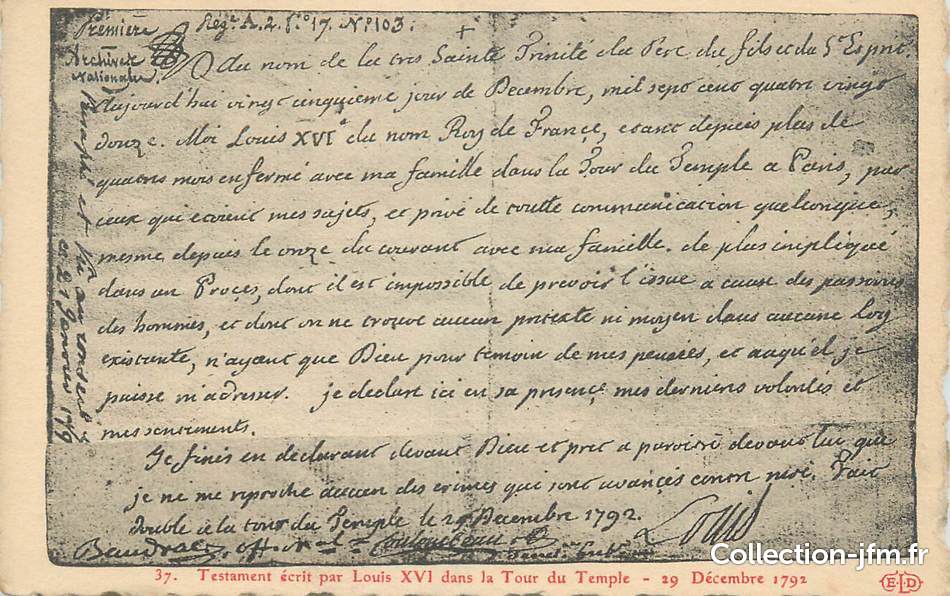 Première Regre A.2. fo 17. No 103.
+
Archives
Nationales.
Au nom de la tres Sainte Trinité du Pere du fils et du St Esprit.
Aujourd'hui vingt cinquieme jour de Decembre, mil sept cent quatre vingt
douze. Moi Louis XVIe du nom Roy de France, etant depuis plus de
quatres mois enfermé avec ma famille dans la Tour du Temple a Paris, par
ceux qui etoient mes sujets, et privé de toutte communication quelconque,
mesme depuis le onze du courant avec ma famille. de plus impliqué
dans un Procès, dont il est impossible de prevoir l'issue a cause des passions
des hommes, et dont on ne trouve aucun pretexte ni moyen dans aucune Loy
existente, n'ayant que Dieu pour temoin de mes pensées, et auquel je
puisse m'adresser. je declare ici en sa presence mes dernieres volontés et
mes sentiments.
Je finis en declarant devant Dieu et pret a paroitre devant Lui que
je ne me reproche aucun des crimes que sont avancés contre moi. Fait
double a la tour du Temple le 25 Decembre 1792.
Louis
Baudrais
37. Testament écrit par Louis XVI dans la Tour du Temple - 29 Décembre 1792
ELD
Collection-jfm.fr